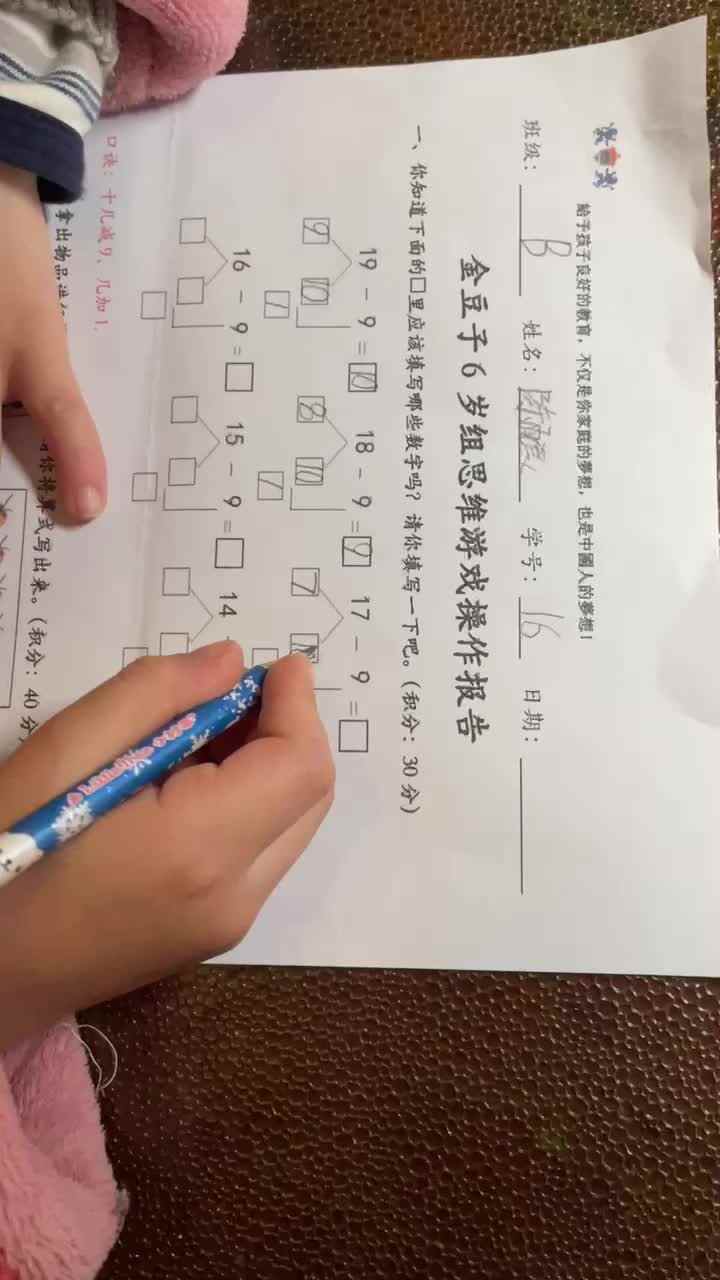 給予孩子良好的教育，不仅是你家庭的夢想，也是中國人的夢想！
班级： B 姓名： 学号： 16 日期：
金豆子6岁组思维游戏操作报告
一、你知道下面的□里应该填写哪些数字吗？请你填写一下吧。（积分：30分）
19 - 9 = 10 18 - 9 = 9 17 - 9 = □
9 10 8 10 7
1 1
16 - 9 = □ 15 - 9 = □ 14
口诀：十几减9，几加1。
拿出物品进
你将算式写出来。（积分：40分